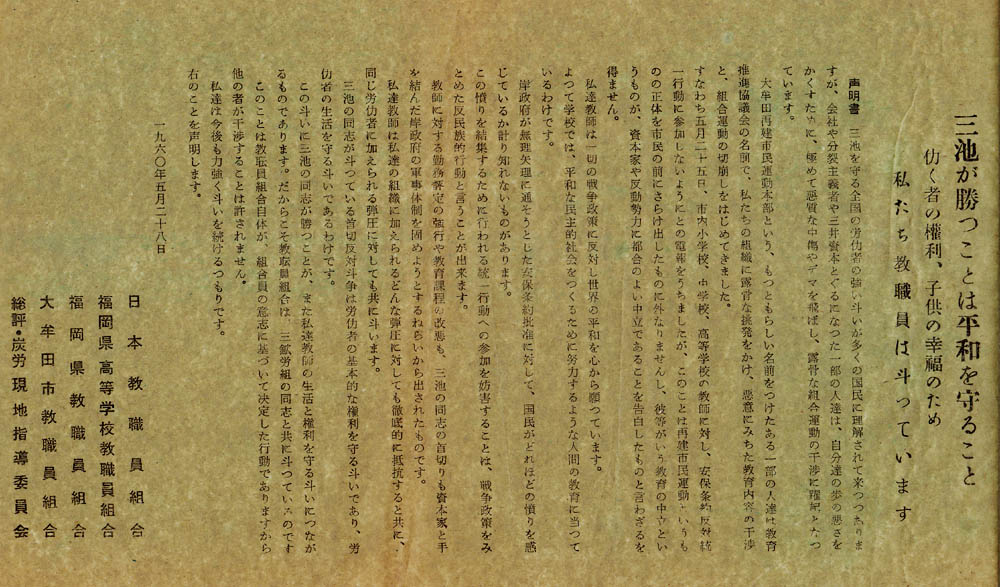 三池が勝つことは平和を守ること
仂く者の權利、子供の幸福のため
私たち教職員は斗つています
声明書　三池を守る全国の労仂者の強い斗いが多くの国民に理解されて来つつありま
すが、会社や分裂主義者や三井資本とぐるになつた一部の人達は、自分達の歩の悪さを
かくすために、極めて悪質な中傷やデマを飛ばし、露骨な組合運動の干渉に躍起となつ
ています。
大牟田再建市民運動本部という、もつともらしい名前をつけたある一部の人達は教育
推進協議会の名前で、私たちの組織に露骨な挑発をかけ、悪意にみちた教育内容の干渉
と、組合運動の切崩しをはじめてきました。
すなわち五月二十五日、市内小学校、中学校、高等学校の教師に対し、安保条約反対統
一行動に参加しないようにとの電報をうちましたが、このことは再建市民運動というも
のの正体を市民の前にさらけ出したものに外なりませんし、彼等がいう教育の中立とい
うものが、資本家や反動勢力に都合のよい中立であることを告白したものと言わざるを
得ません。
私達教師は一切の戦争政策に反対し世界の平和を心から願つています。
よつて学校では、平和な民主的社会をつくるために努力するような人間の教育に当つて
いるわけです。
岸政府が無理矢理に通そうとした安保条約批准に対して、国民がどれほどの憤りを感
じているか計り知れないものがあります。
この憤りを結集するために行われる統一行動への参加を妨害することは、戦争政策をみ
とめた反民族的行動と言うことが出来ます。
教師に対する勤務評定の強行や教育課程の改悪も、三池の同志の首切りも資本家と手
を結んだ岸政府の軍事体制を固めようとするねらいから出されたものです。
私達教師は私達の組織に加えられるどんな弾圧に対しても徹底的に抵抗すると共に、
同じ労仂者に加えられる弾圧に対しても共に斗います。
三池の同志が斗つている首切反対斗争は労仂者の基本的な権利を守る斗いであり、労
仂者の生活を守る斗いであるわけです。
この斗いに三池の同志が勝つことが、また私達教師の生活と権利を守る斗いにつなが
るものであります。だからこそ教職員組合は、三鉱労組の同志と共に斗つているのです
このことは教職員組合自体が、組合員の意志に基づいて決定した行動でありますから
他の者が干渉することは許されません。
私達は今後も力強く斗いを続けるつもりです。
右のことを声明します。
一九六〇年五月二十八日
日本教職員組合
福岡県高等学校教職員組合
福岡県教職員組合
大牟田市教職員組合
総評・炭労現地指導委員会